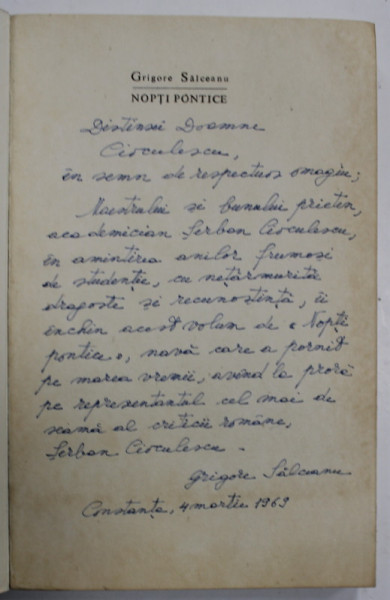 Grigore Sălceanu
NOPȚI PONTICE
Distinsei Doamne
Cioculescu,
în semn de respectuos omagiu;
Maestrului și bunului prieten,
academician Șerban Cioculescu,
în amintirea anilor frumoși
de studenție, cu nețărmurită
dragoste și recunoștință, îi
închin acest volum de « Nopți
pontice », navă care a pornit
pe marea vremii, având la proră
pe reprezentantul cel mai de
seamă al criticii române,
Șerban Cioculescu.
Grigore Sălceanu
Constanța, 4 martie 1969